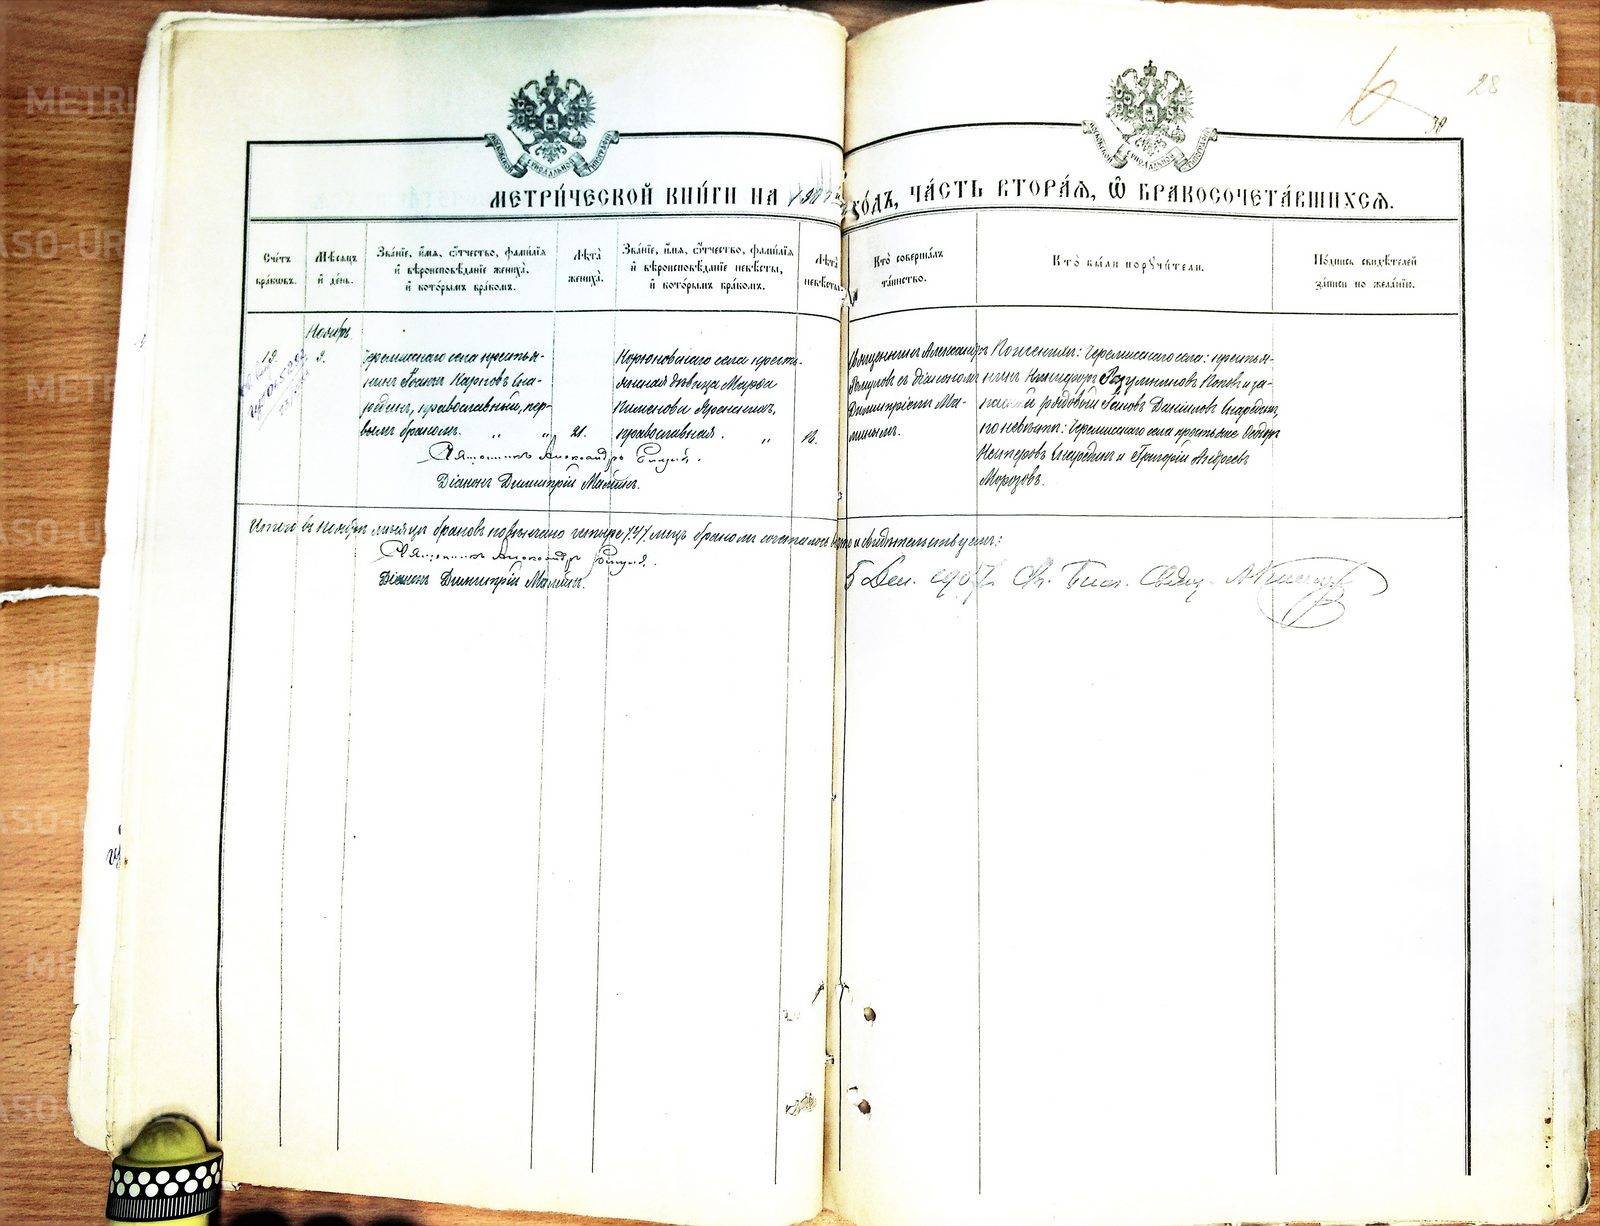 28
МЕТРИ́ЧЕСКОЙ КНИ́ГИ НА 1907 ГО́ДЪ, ЧА́СТЬ ВТОРА́Я, Ѡ БРАКОСОЧЕТА́ВШИХСЯ.
Сче́тъ бра́ковъ.
Мѣ́сяцъ и де́нь.
Зва́нїе, и́мя, ѻ́тчество, фами́лїя и вѣроисповѣ́данїе жениха̀, и кото́рымъ бра́комъ.
Лѣ́та жениха̀.
Зва́нїе, и́мя, ѻ́тчество, фами́лїя и вѣроисповѣ́данїе невѣ́сты, и кото́рымъ бра́комъ.
Лѣ́та невѣ́сты.
Кто̀ соверша́лъ та́инство.
Кто̀ бы́ли поручи́тели.
По́дпись свидѣ́телей за́писи по жела́нїю.
Ноябрь
19. 9.
Черемисскаго села крестья-
нинъ Іоаннъ Карповъ Ска-
рединъ, православный, пер-
вымъ бракомъ. „ „ 21.
Корюковскаго села кресть-
янская дѣвица Марѳа
Пименова
православная. „ 18.
Священникъ Александръ
съ діакономъ
Димитріемъ Ма-
минымъ.
По женихѣ: Черемисскаго села: крестья-
нинъ Никифоръ Поповъ и за-
пасный рядовой Іаковъ Даниловъ Скарединъ,
по невѣстѣ: Черемисскаго села крестьяне Ѳедоръ
Скарединъ и Григорій Андреевъ
Морозовъ.
Священникъ Александръ
Діаконъ Димитрій Маминъ.
Итого въ Ноябрѣ мѣсяцѣ браковъ повѣнчано четыре /4/ лицъ бракомъ сочеталось свидѣтельствуемъ:
Священникъ Александръ
Діаконъ Димитрій Маминъ.
5 Дек. 1907 г. Свящ.